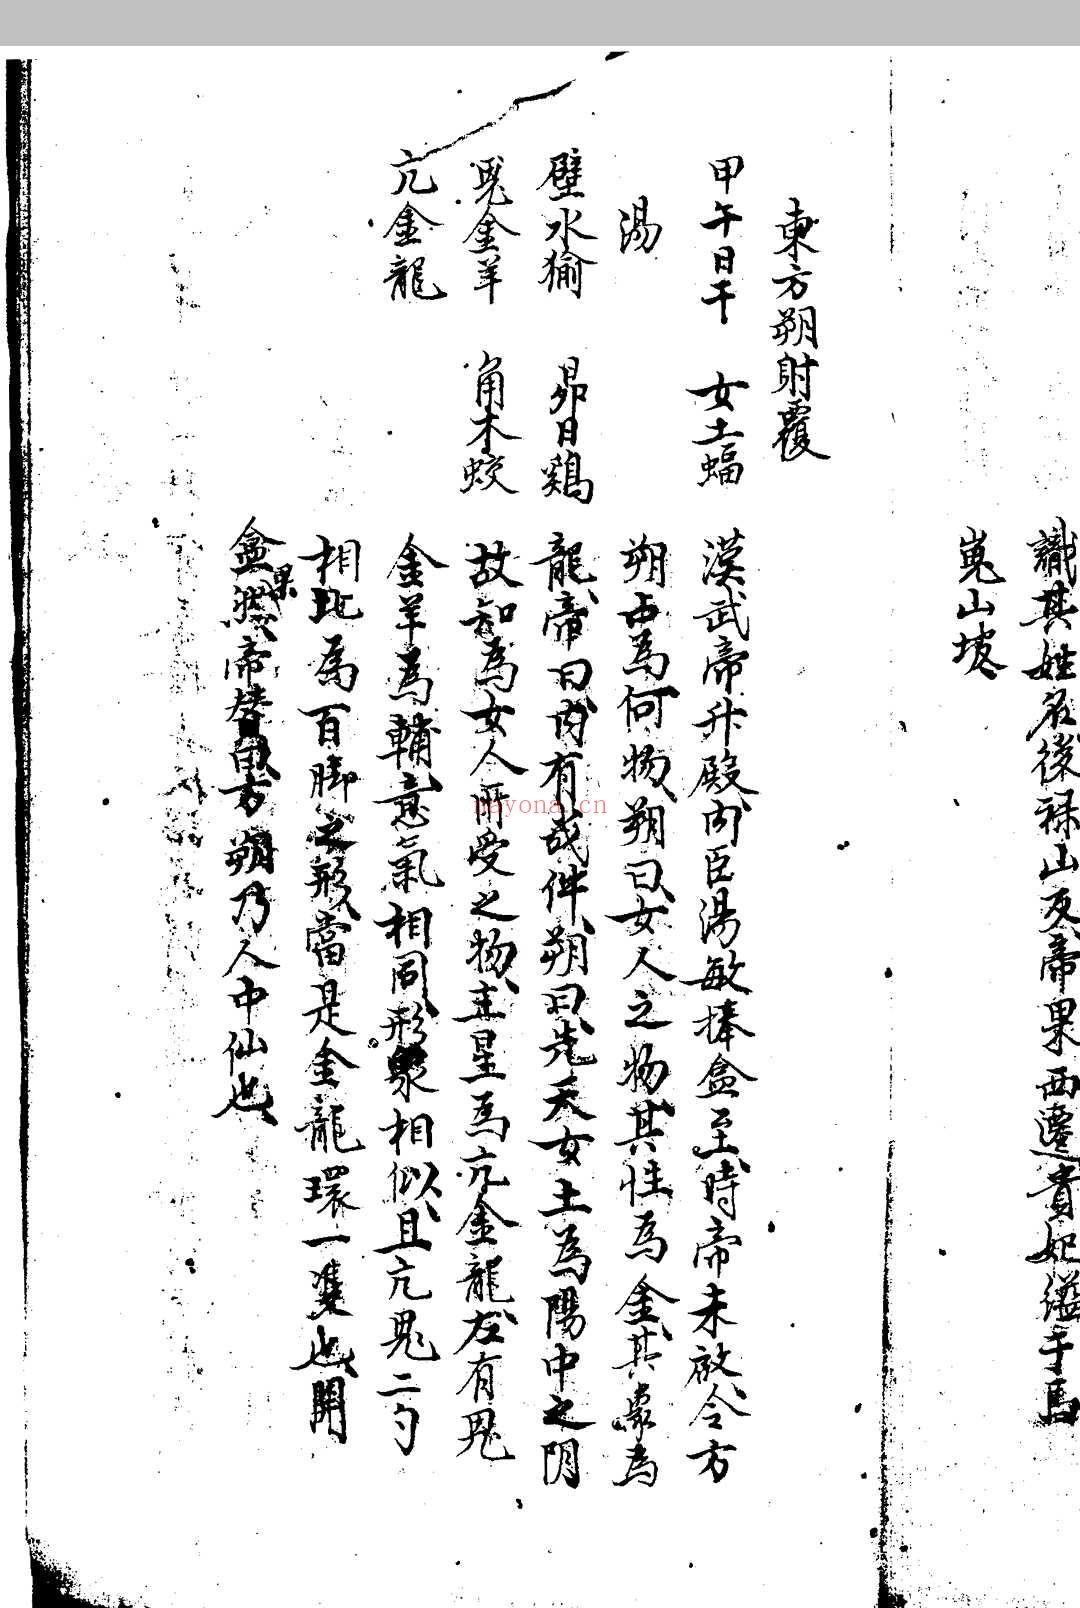 識其姓名後祿山反帝果西遷貴妃縊于馬
嵬山坡
東方朔射覆
甲午日干 女土蝠 漢武帝升殿内臣湯敏捧盒至時帝未啟令方
湯 朔占為何物朔曰女人之物其性為金其象為
壁水㺄 昴日鷄 龍帝曰内有成件朔曰先天女土為陽中之阴
鬼金羊 角木蛟 故知為女人所受之物主星為亢金龍左有鬼
亢金龍 金羊為輔意氣相同形象相似且亢鬼二勺
相比為百脚之形當是金龍環一隻也開
盒果然帝替曰方朔乃人中仙也
nayona.cn